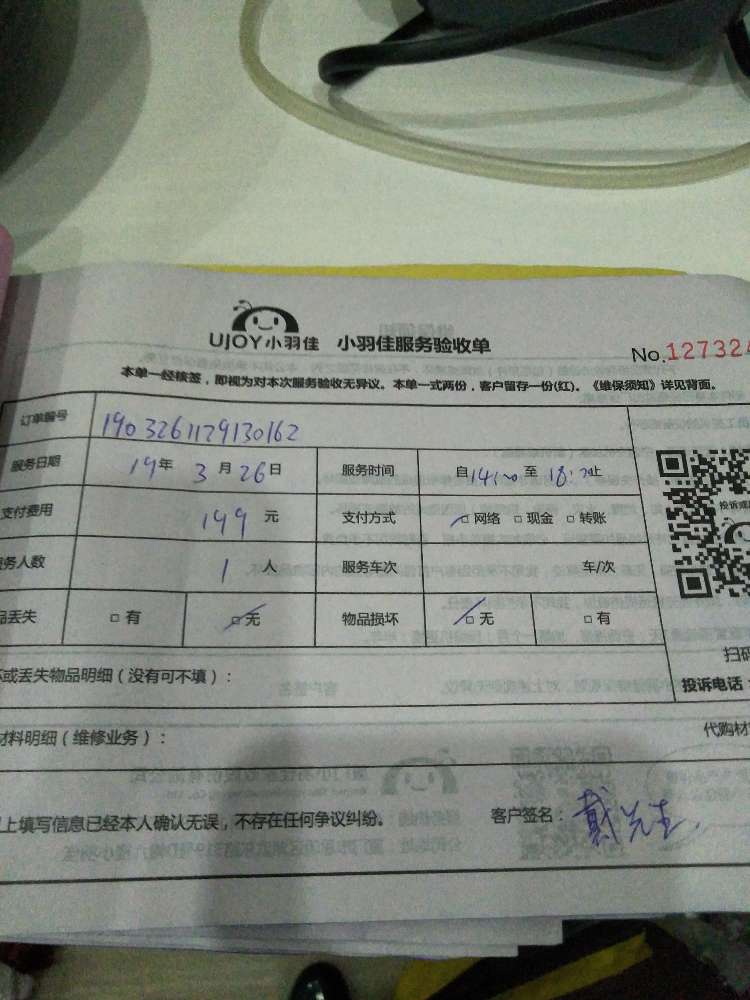 UJOY小羽佳 小羽佳服务验收单
No.127324
本单一经核签，即视为对本次服务验收无异议。本单一式两份，客户留存一份(红)。《维保须知》详见背面。
订单编号 1903261129130162
服务日期 19年 3月 26日 服务时间 自14:00至18:00止
支付费用 149元 支付方式 □网络 □现金 □转账
务人数 1人 服务车次 车/次
品丢失 □有 □无 物品损坏 □无 □有
投诉或
扫码
坏或丢失物品明细（没有可不填）：
投诉电话：
材料明细（维修业务）：
代购材
上填写信息已经本人确认无误，不存在任何争议纠纷。
客户签名：戴先生